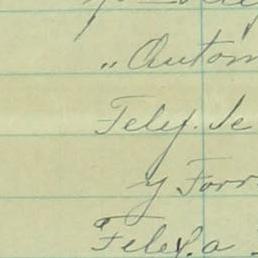 „Autom
Telef. Se
y Forr
Telef. a